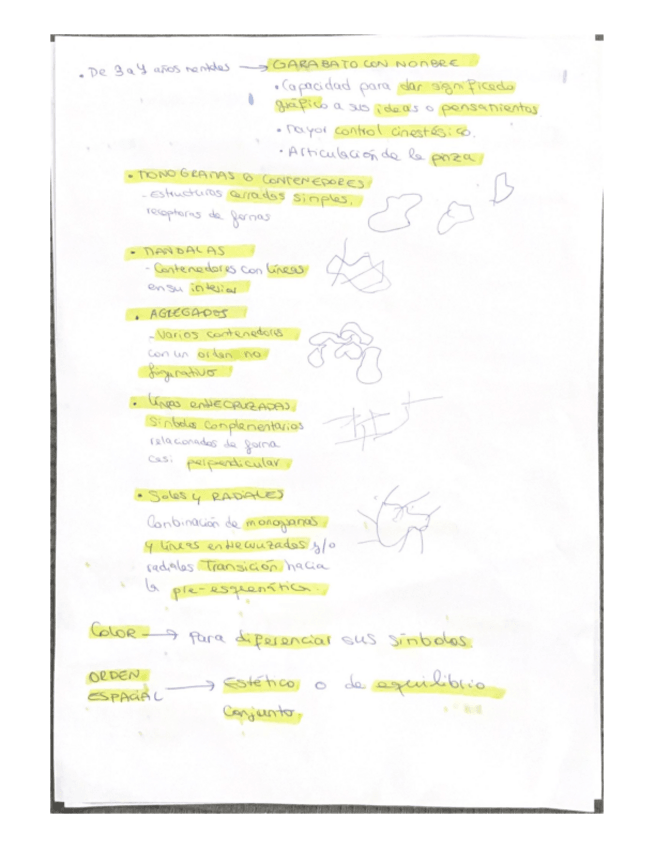 • De 3 a 4 años mentales → GARABATO CON NOMBRE
• Capacidad para dar significado
gráfico a sus ideas o pensamientos
• Mayor control cinestésico.
• Articulación de la pinza
• MONOGRAMAS O CONTENEDORES
- estructuras cerradas simples,
receptoras de formas
• MANDALAS
- Contenedores con líneas
en su interior
• AGREGADOS
- Varios contenedores
con un orden no
figurativo
• Líneas entrecruzadas
Símbolos complementarios
relacionados de forma
casi perpendicular.
• Soles y RADIALES
Combinación de monogramas
y líneas entrecruzadas y/o
radiales Transición hacia
la pre-esquemática.
Color → para diferenciar sus símbolos.
ORDEN
ESPACIAL → Estético o de equilibrio
Conjunto.